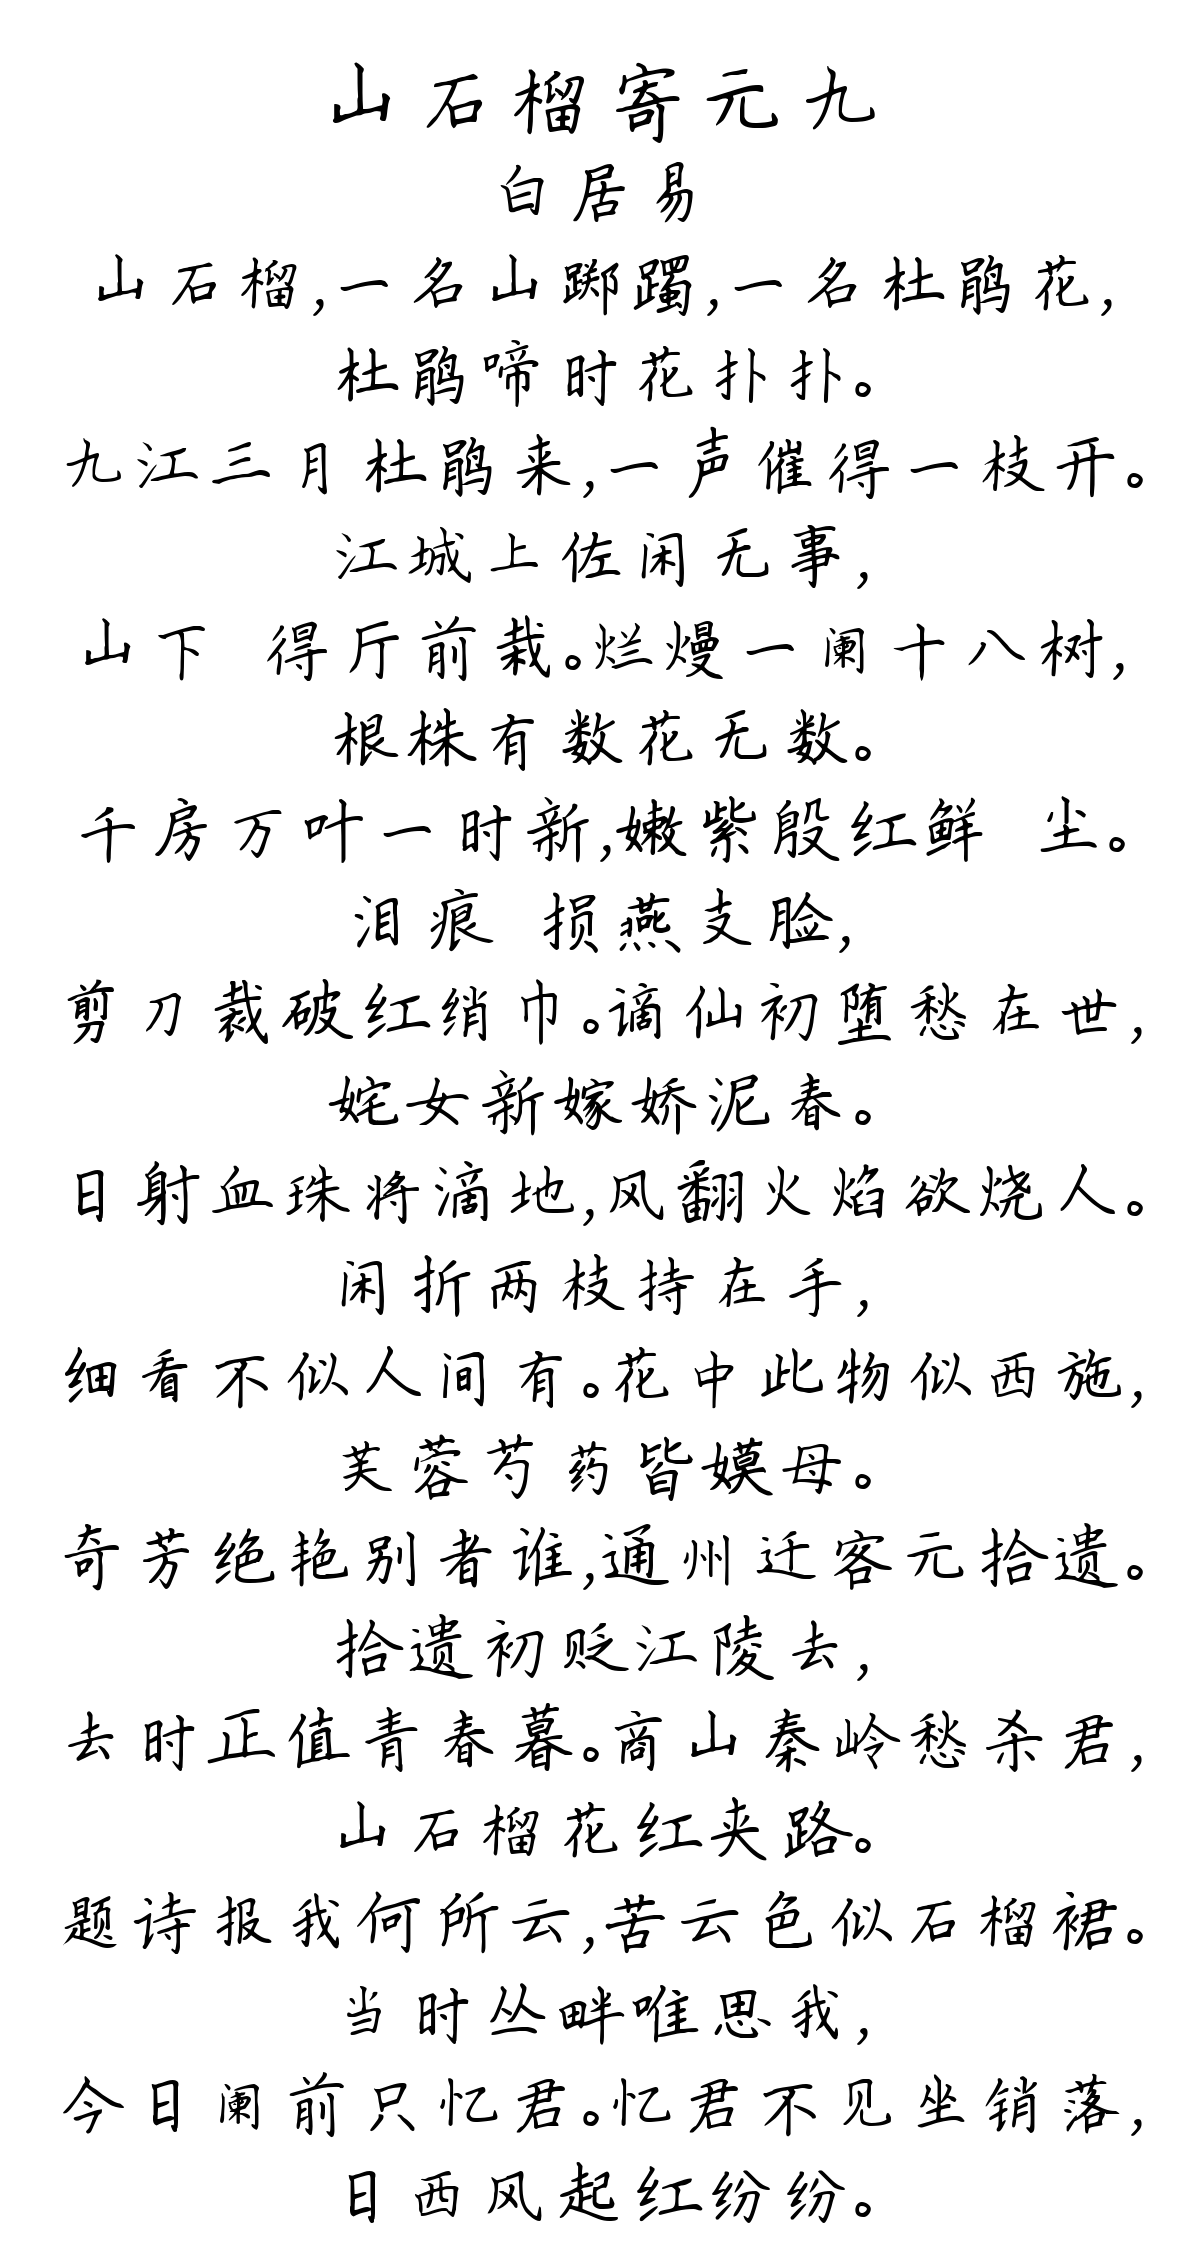 山石榴寄元九
白居易
山石榴,一名山踯躅,一名杜鹃花,
杜鹃啼时花扑扑。
九江三月杜鹃来,一声催得一枝开。
江城上佐闲无事,
山下 得厅前栽。烂熳一阑十八树,
根株有数花无数。
千房万叶一时新,嫩紫殷红鲜 尘。
泪痕 损燕支脸,
剪刀裁破红绡巾。谪仙初堕愁在世,
姹女新嫁娇泥春。
日射血珠将滴地,风翻火焰欲烧人。
闲折两枝持在手,
细看不似人间有。花中此物似西施,
芙蓉芍药皆嫫母。
奇芳绝艳别者谁,通州迁客元拾遗。
拾遗初贬江陵去,
去时正值青春暮。商山秦岭愁杀君,
山石榴花红夹路。
题诗报我何所云,苦云色似石榴裙。
当时丛畔唯思我,
今日阑前只忆君。忆君不见坐销落,
日西风起红纷纷。